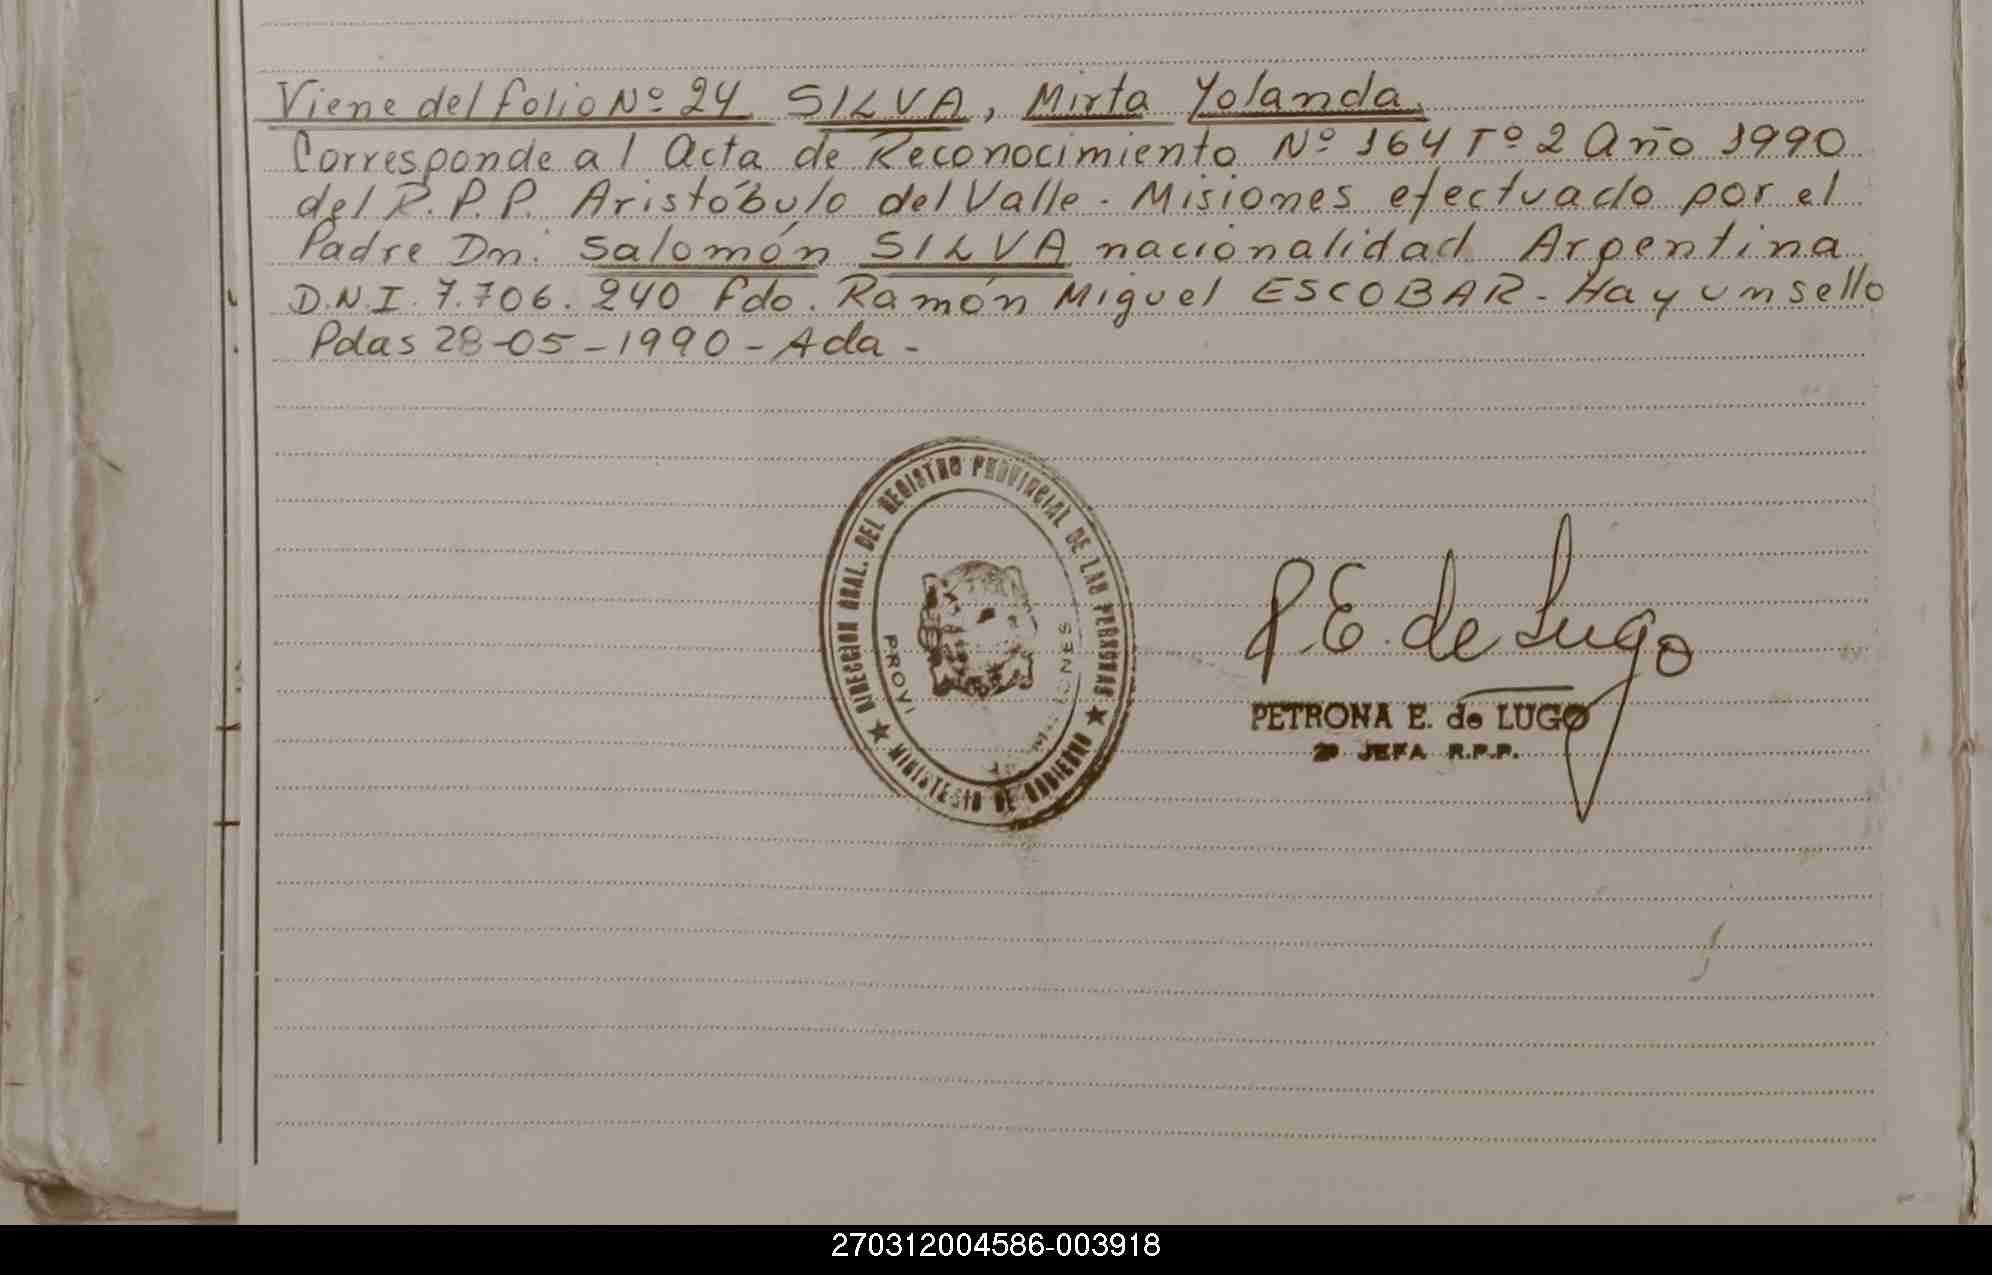 Viene del folio Nº 24 SILVA, Mirta Yolanda.
Corresponde al Acta de Reconocimiento Nº 164 Tº 2 Año 1990
del R.P.P. Aristóbulo del Valle - Misiones efectuado por el
Padre Dn. Salomón SILVA nacionalidad Argentina
D.N.I. 7.706.240 Fdo. Ramón Miguel ESCOBAR - Hay un sello
Pdas 28-05-1990 - Ada -
DIRECCION GRAL. DEL REGISTRO PROVINCIAL DE LAS PERSONAS
MINISTERIO DE GOBIERNO
PROVI
IONES
P.E. de Lugo
PETRONA E. de LUGO
2ª JEFA R.P.P.
270312004586-003918